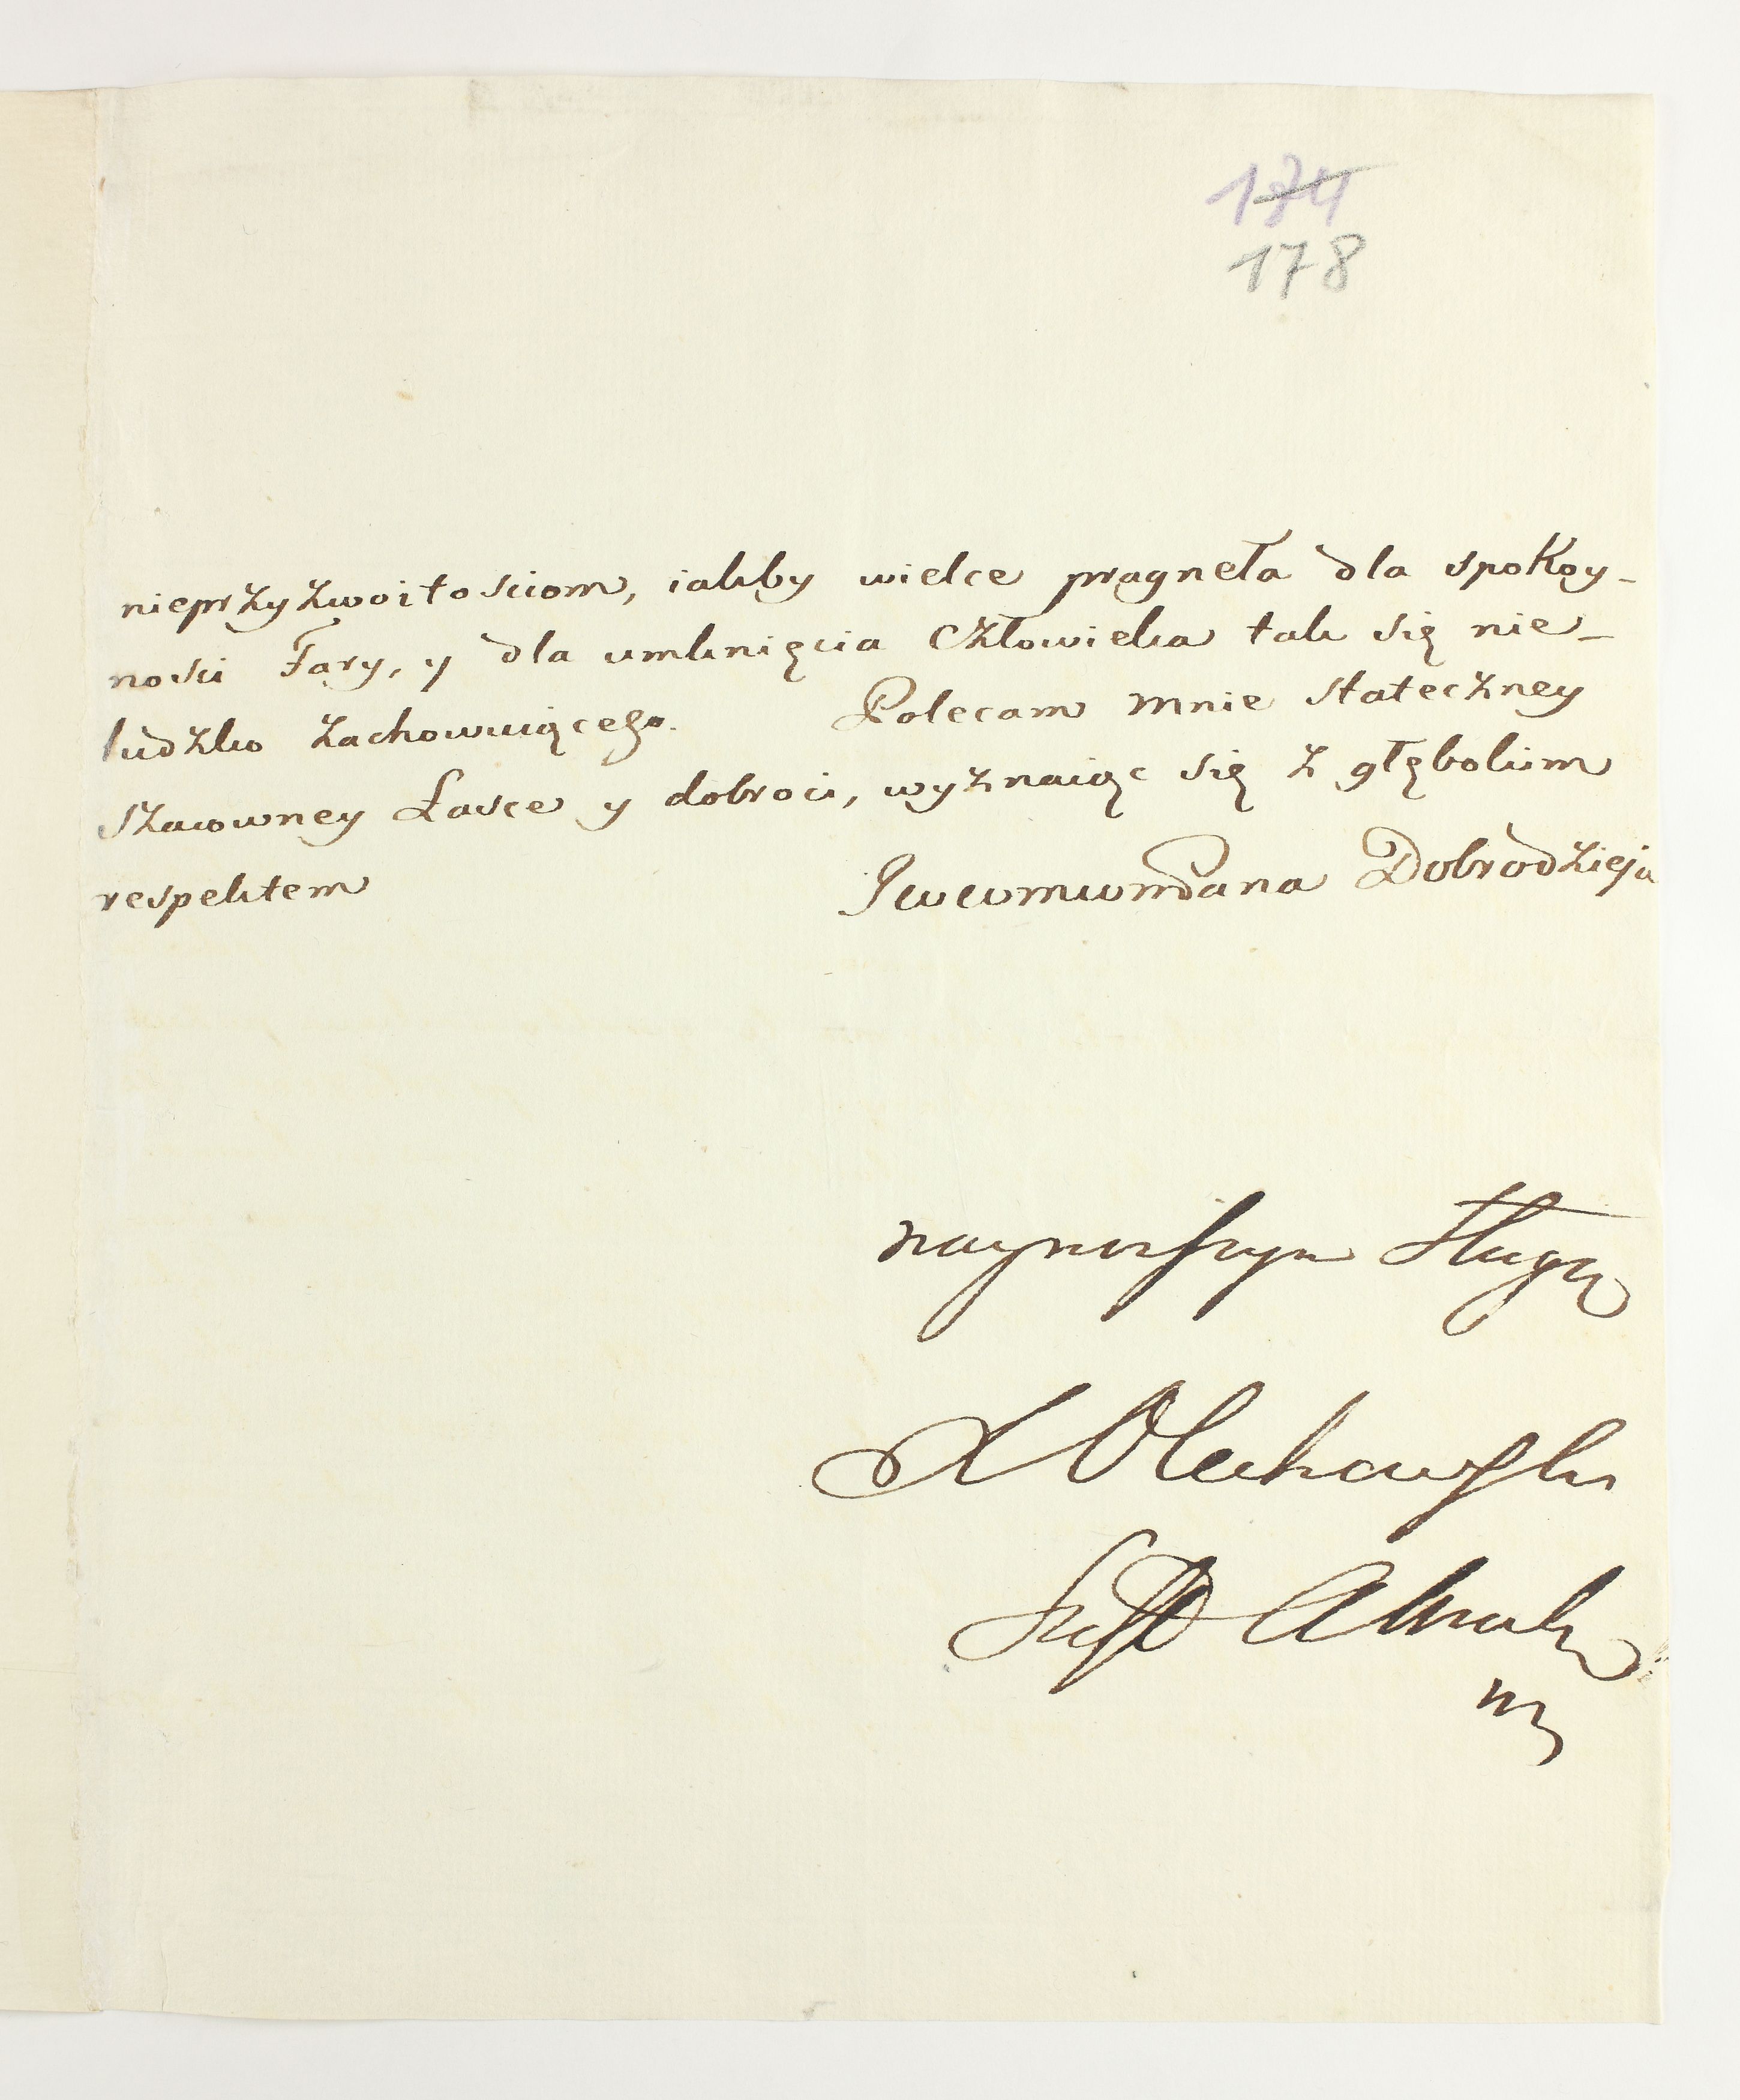 174
178
nieprzyzwoitosciom, iakby wielce pragneła dla spokoy-
nosci Fary, y dla umknięcia Człowieka tak się nie-
ludzko zachowuiącego. Polecam mnie stateczney
szacowney Łasce y dobroci, wyznaiąc się z głębokim
respektem Dobrodzieja
naynizszym Sługą
X Olechowski